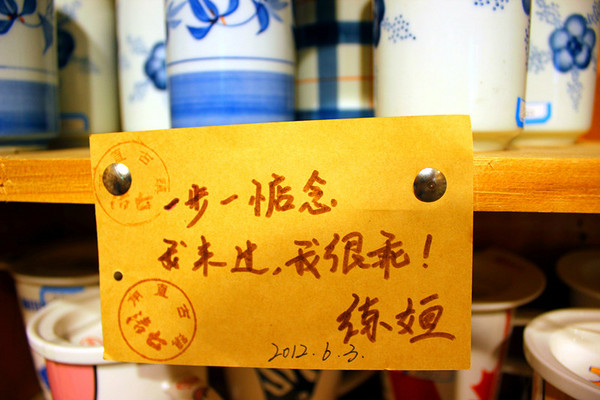 一步一惦念
我来过,我很乖!
练姮
2012.6.3.
甪直古镇